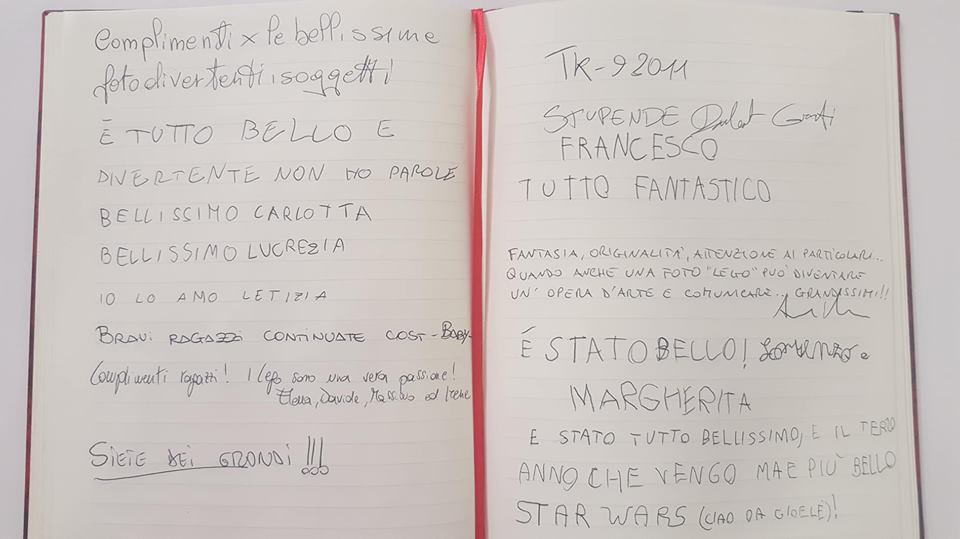 Complimenti x le bellissime
foto divertenti i soggetti
È TUTTO BELLO E
DIVERTENTE NON HO PAROLE
BELLISSIMO CARLOTTA
BELLISSIMO LUCREZIA
IO LO AMO LETIZIA
BRAVI RAGAZZI CONTINUATE COSÌ - BABY-
Complimenti ragazzi! I Lego sono una vera passione!
Elena, Davide, Massimo ed Irene
SIETE DEI GRANDI !!!
TK-9 2011
STUPENDE
FRANCESCO
TUTTO FANTASTICO
FANTASIA, ORIGINALITA', ATTENZIONE AI PARTICOLARI...
QUANDO ANCHE UNA FOTO "LEGO" PUO' DIVENTARE
UN' OPERA D'ARTE E COMUNICARE... GRANDISSIMI!!
È STATO BELLO! Lorenzo e
MARGHERITA
E STATO TUTTO BELLISSIMO, E IL TERZO
ANNO CHE VENGO MA E PIÙ BELLO
STAR WARS (CIAO DA GIOELE)!